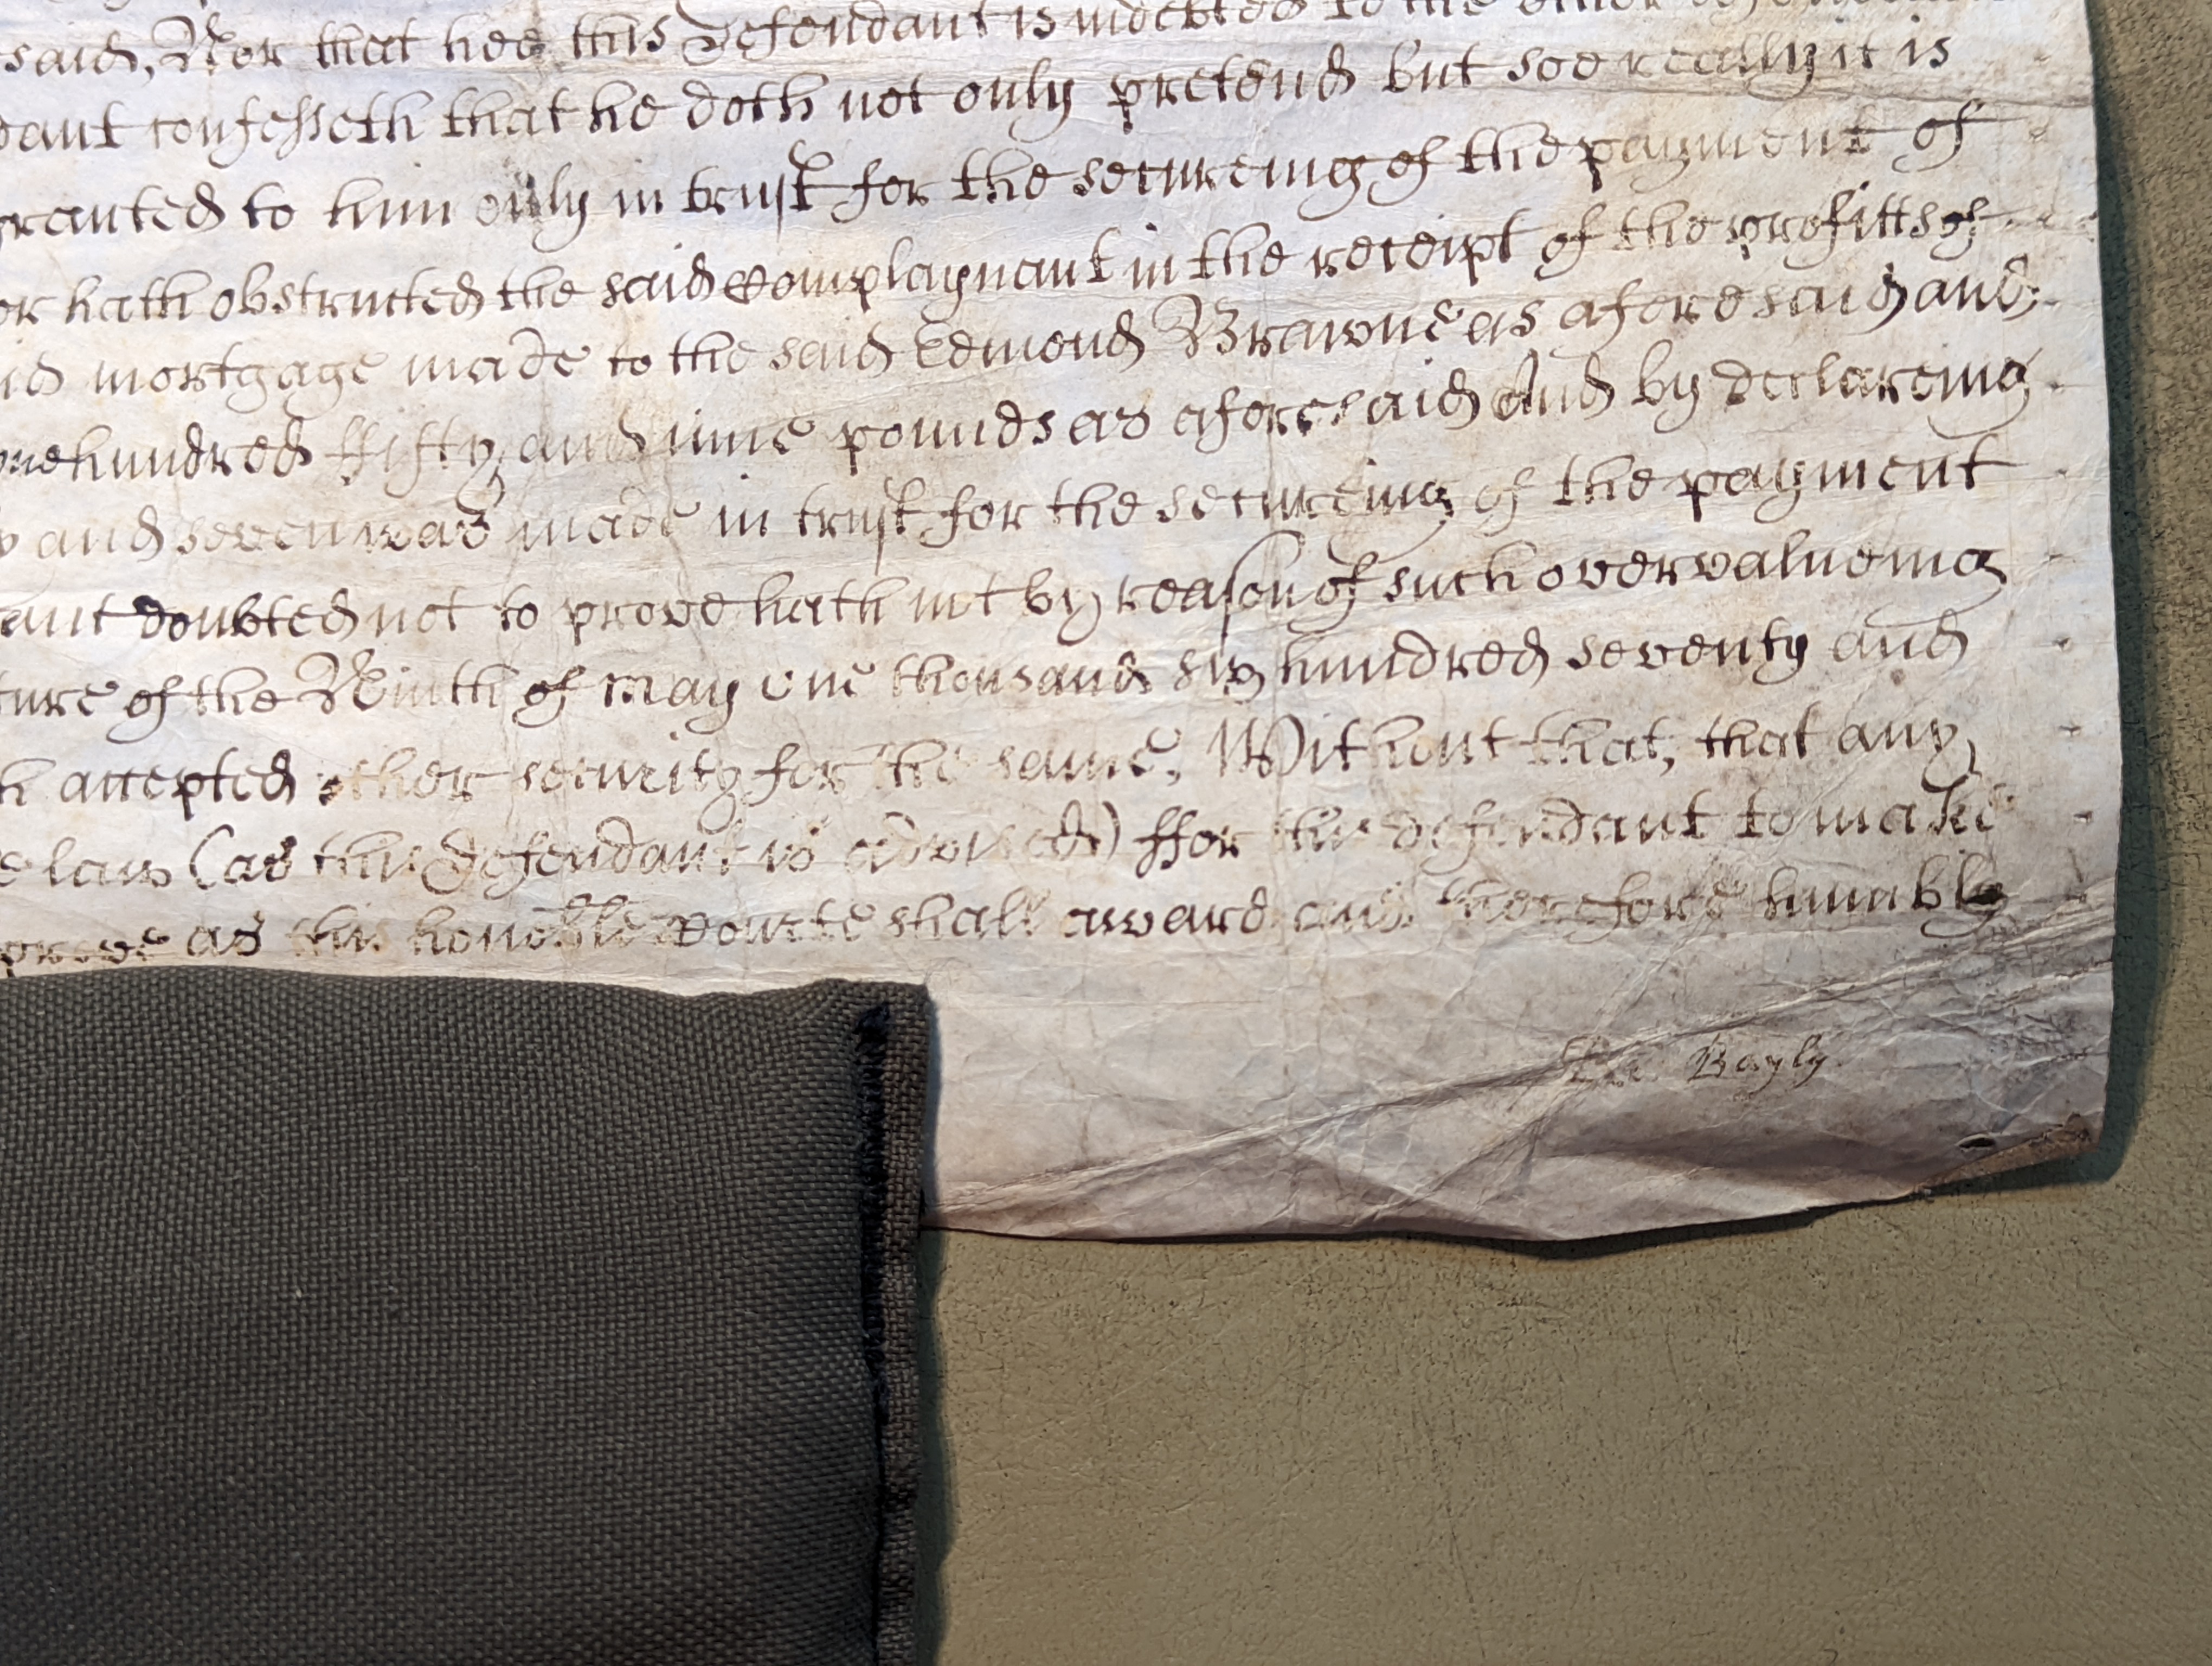 said, Nor that hee this Defendant is indebted to the
dant confesseth that he doth not only pretend but soe really it is
granted to him only in trust for the secureing of the payment of
or hath obstructed the said Complaynant in the receipt of the profitts of
id mortgage made to the said Edmond Browne as aforesaid and
one hundred ffifty and nine pounds as aforesaid And by declareing
and seven was made in trust for the secureing of the payment
ant doubted not to prove hath not by reason of such overvalueing
ture of the Ninth of May one thousand six hundred seventy and
h accepted other security for the same, Without that, that any
e law (as this defendant is advised) ffor this defendant to make
prove as this honoble Courte shall award and therefore humbly
Bayly